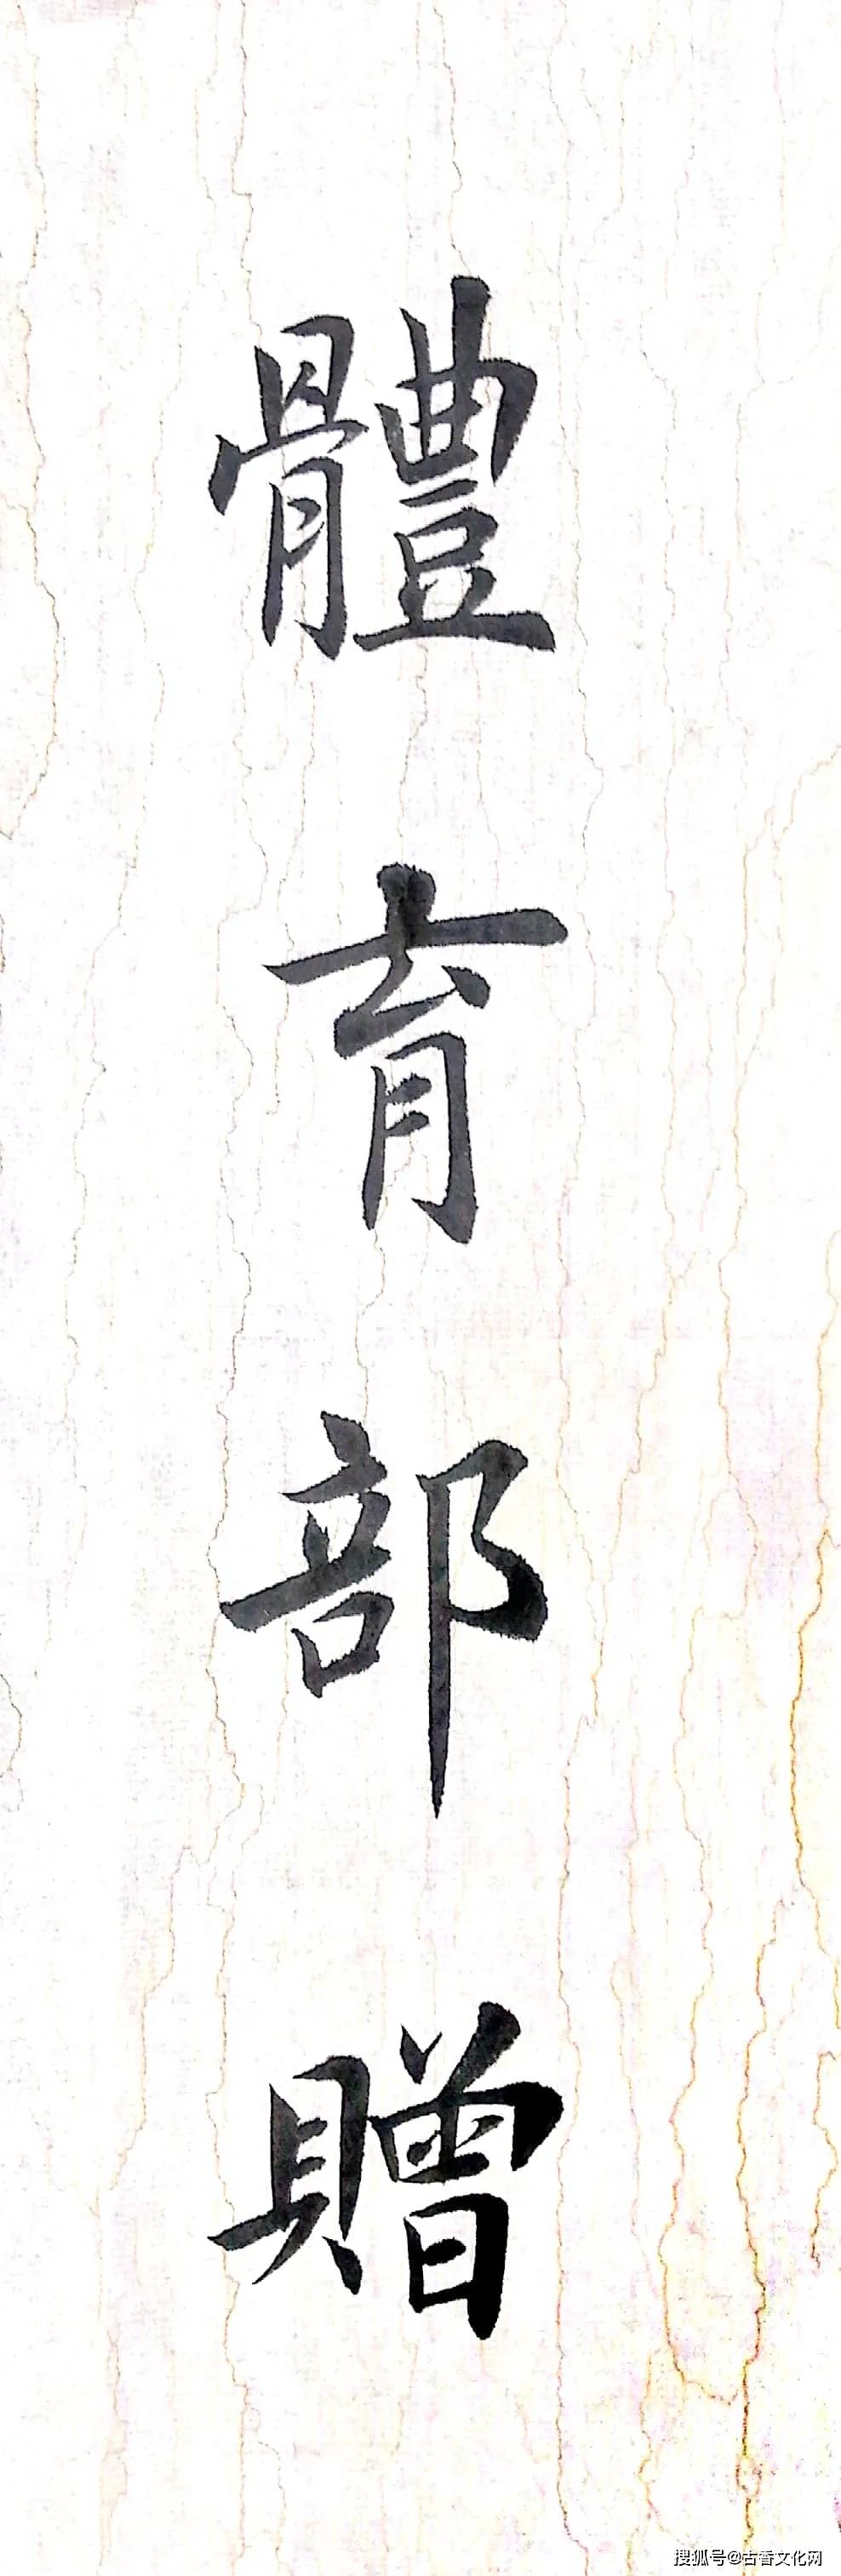 體育部贈
搜狐号@古香文化网